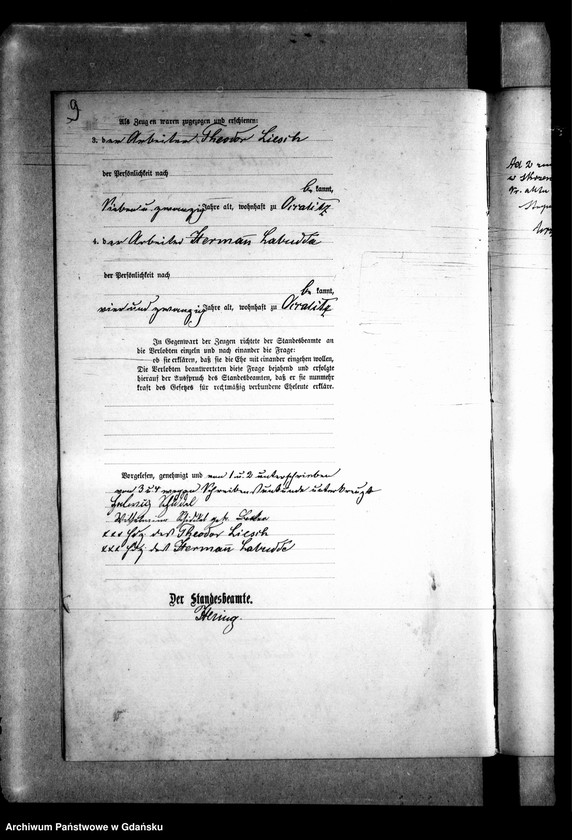 9
Als Zeugen waren zugezogen und erschienen:
3. der Arbeiter Theodor Liesch
der Persönlichkeit nach
be kannt,
Sieben u. zwanzig Jahre alt, wohnhaft zu Ossalitz
4. der Arbeiter Herman Labudda
der Persönlichkeit nach
be kannt,
vier und zwanzig Jahre alt, wohnhaft zu Ossalitz
In Gegenwart der Zeugen richtete der Standesbeamte an
die Verlobten einzeln und nach einander die Frage:
ob sie erklären, daß sie die Ehe mit einander eingehen wollen,
Die Verlobten beantworteten diese Frage bejahend und erfolgte
hierauf der Ausspruch des Standesbeamten, daß er sie nunmehr
kraft des Gesetzes für rechtmäßig verbundene Eheleute erkläre.
Vorgelesen, genehmigt und von 1 u. 2 unterschrieben
von 3 u 4 wegen Schreibensunkunde unterkreuzt
xxx Hdz des Theodor Liesch
xxx Hdz des Herman Labudda
Der Standesbeamte.
Hering.
Ad 2
w
Archiwum Państwowe w Gdańsku